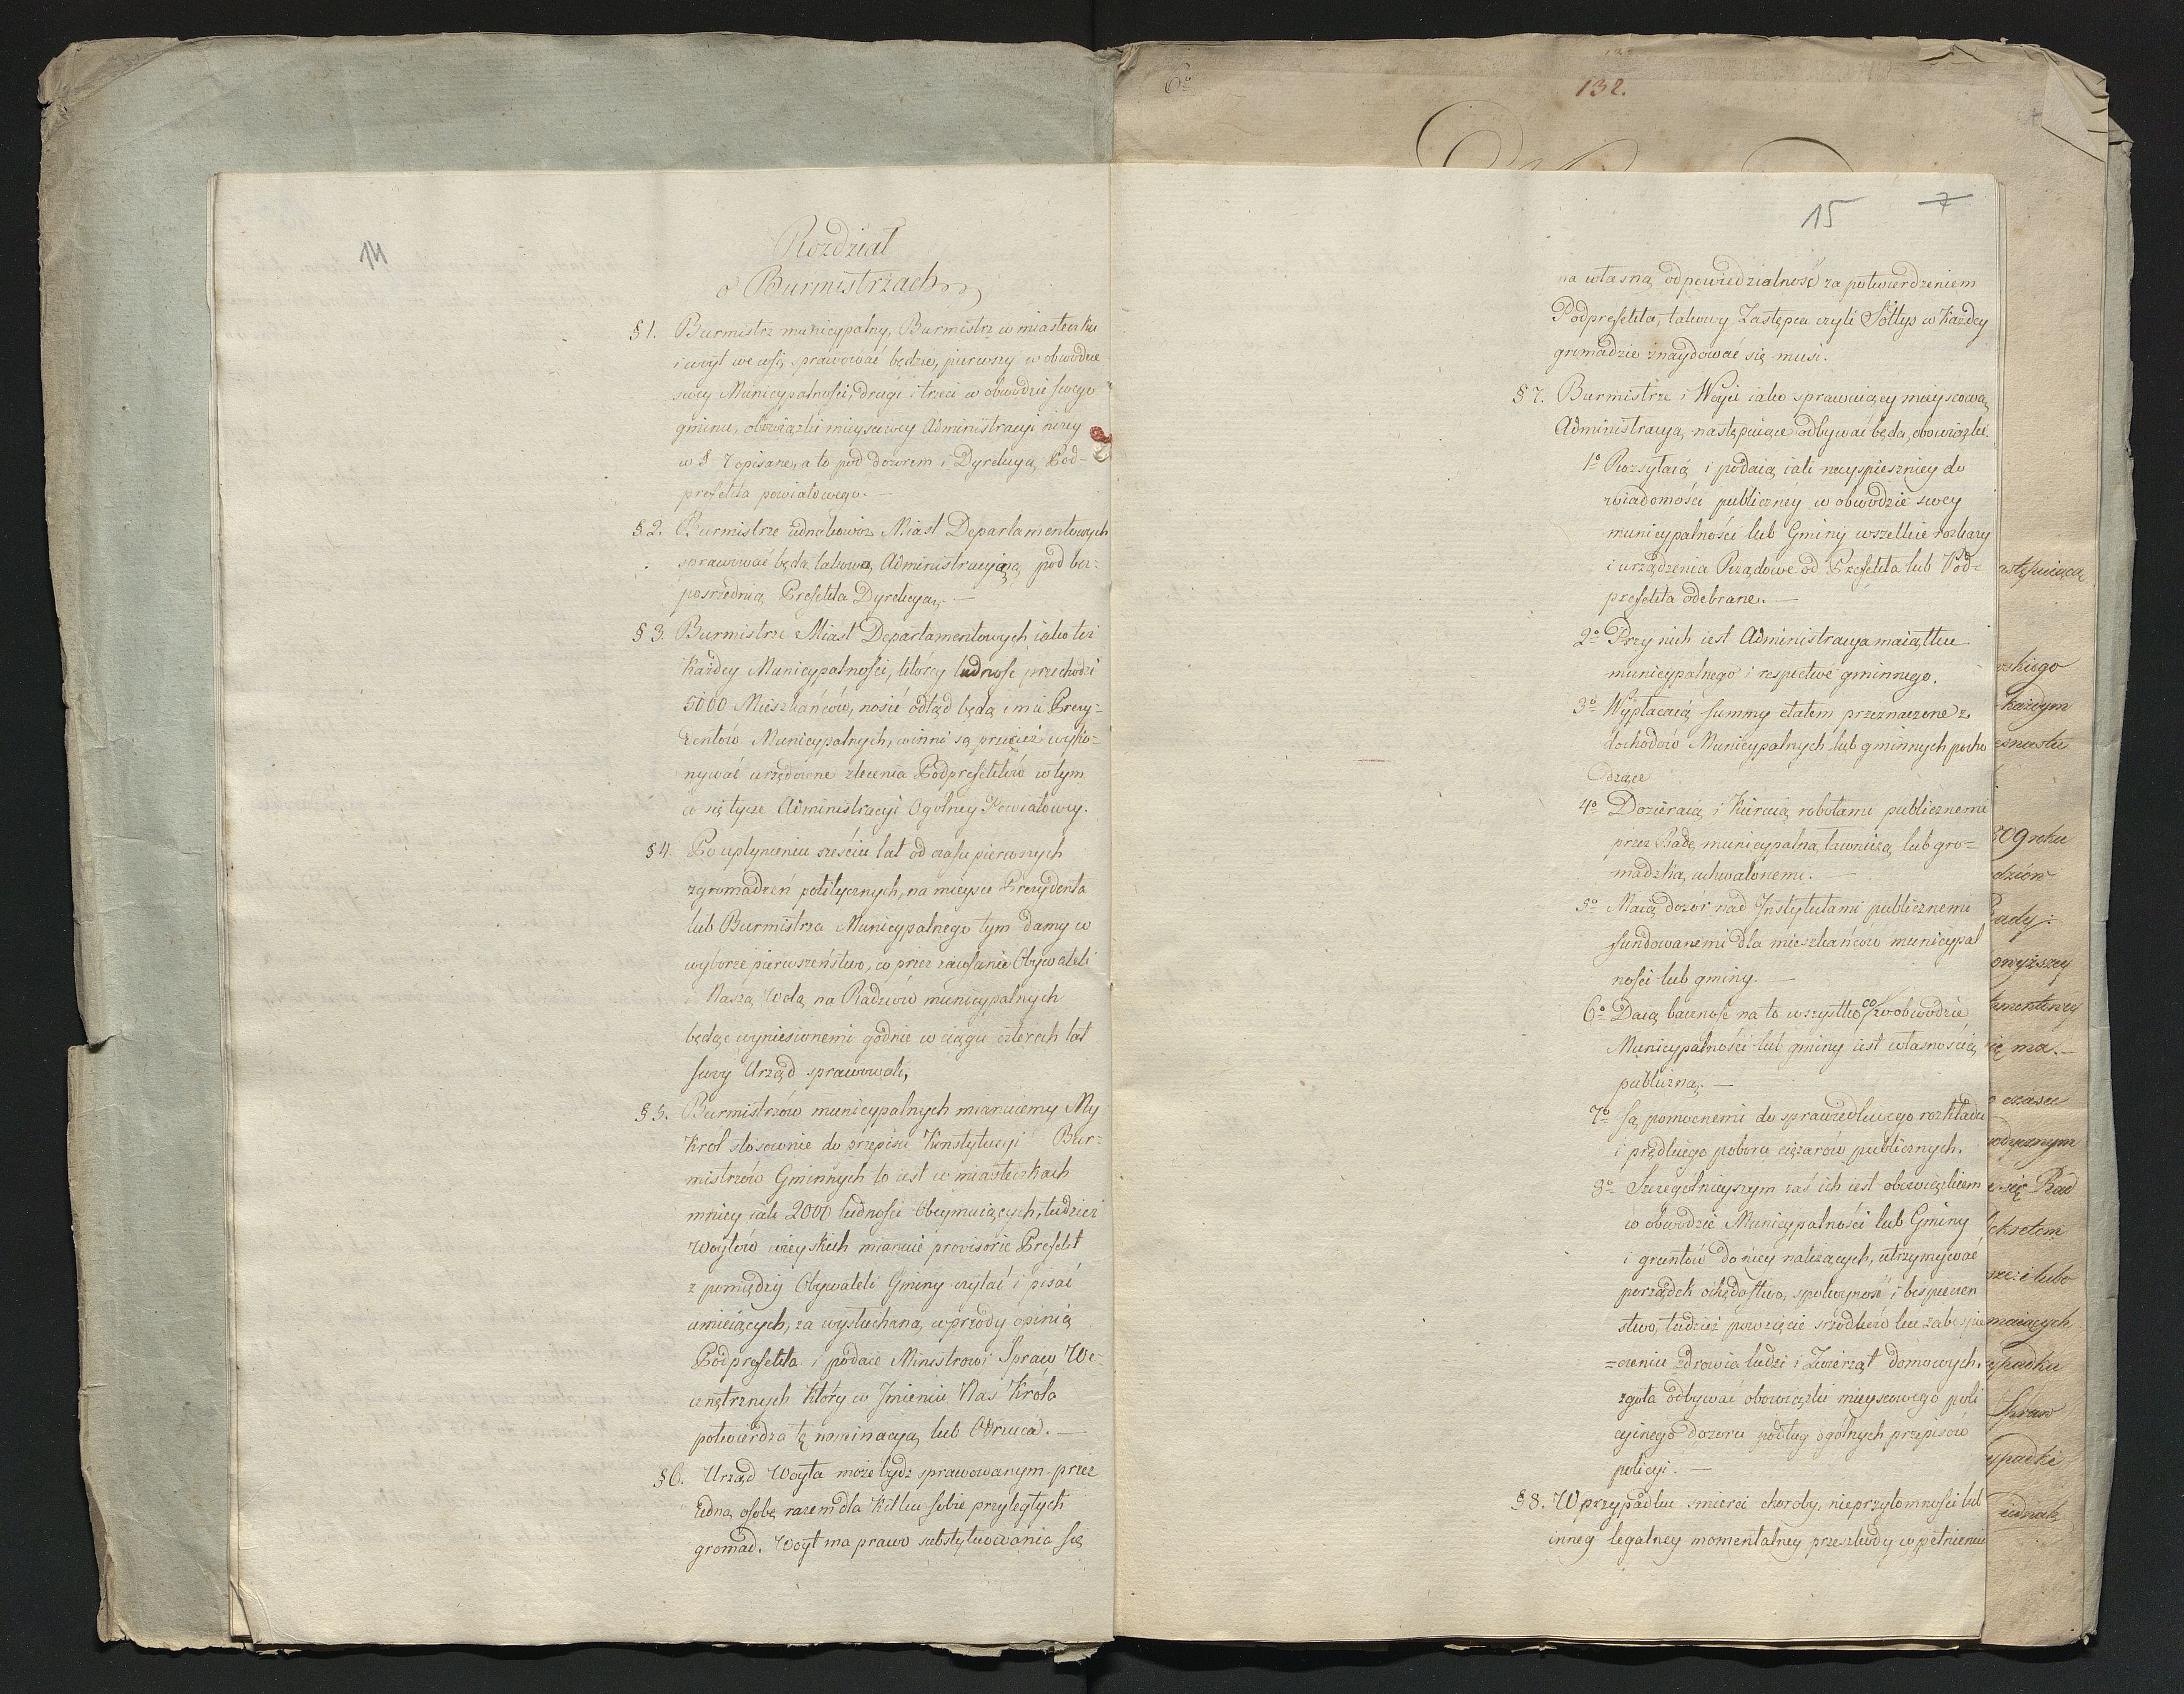 14
Rozdział
o Burmistrzach
§ 1. Burmistrz municypalny, Burmistrz w miasteczku
i woyt we wsi, sprawować będzie, pierwszy w obwodzie
swey Municypalności, drugi i trzeci w obwodzie swego
gminu, obowiązki mieyscowey Administracyi niżey
w § 7 opisane, a to pod dozorem i Dyrekcyą Pod-
prefekta powiatowego. —
§ 2. Burmistrze iednakowoż Miast Departamentowych
sprawować będą takową Administracyią pod bez-
pośrzednią Prefekta Dyrekcyą. —
§ 3. Burmistrze Miast Departamentowych iako też
Każdey Municypalności, którey ludność przechodzi
5000 Mieszkańców, nosić odtąd będą imie Prezy-
dentów Municypalnych, winni są przecież wyko-
nywać urzędowne zlecenia Podprefektów w tym
co się tycze Administracyi Ogólney Powiatowey.
§ 4 Po upłynieniu sześciu lat od czasu pierwszych
zgromadzeń politycznych, na mieysce Prezydenta
lub Burmistrza Municypalnego tym damy w
wyborze pierwszeństwo, co przez zaufanie Obywateli
i Naszą Wolą na Radzców municypalnych
będąc wyniesionemi godnie w ciągu czterech lat
swóy Urząd sprawowali,
§ 5. Burmistrzów municypalnych mianuiemy My
Krol stosownie do przepisu Konstytucyi Bur-
mistrzów Gminnych to iest w miasteczkach
mniey iak 2000 ludności Obeymuiących, tudzież
Woytów wieyskich mianuie provisorie Prefekt
z pomiędzy Obywateli Gminy czytać i pisać
umieiących, za wysłuchaną wprzódy opinią
Podprefekta i podaie Ministrowi Spraw We-
wnętrznych Który w Jmieniu Nas Króla
potwierdza tę nominacyą lub Odrzuca. —
§ 6. Urząd Woyta może bydz sprawowanym przez
iedną osobę razem dla Kilku sobie przyległych
gromad. Woyt ma prawo substytuowania się
6º
132.
15 7
na własną odpowiedzialność za potwierdzeniem
Podprefekta, takowy Zastępca czyli Sołtys w Każdey
gromadzie znaydować się musi.
§ 7. Burmistrze i Woyci iako sprawuiący mieyscową
Administracyą następuiące odbywać będą obowiązki
1º Rozsyłaią i podaią iak nayspieszniey do
wiadomości publiczney w obwodzie swey
municypalności lub Gminy wszelkie rozkazy
i urządzenia Rządowe od Prefekta lub Pod-
prefekta odebrane. —
2º Przy nich iest Administracya maiątku
municypalnego i respective gminnego.
3º Wypłacaią summy etatem przeznaczone z
dochodów Municypalnych lub gminnych pocho
dzące
4º Dozieraią i Kieruią robotami publicznemi
przez Radę municypalną, lub gro-
madzką uchwalonemi. —
5º Maią dozór nad Jnstytutami publicznemi
fundowanemi dla mieszkańców municypal
ności lub gminy. —
6º Daią baczność na to wszystko co w obwodzie
Municypalności lub gminy iest własnością
publiczną. —
7º Są pomocnemi do sprawiedliwego rozkładu
i prędkiego poboru ciężarów publicznych.
8º Szczególnieyszym zaś ich iest obowiązkiem
w obwodzie Municypalności lub Gminy
i gruntów do niey należących, utrzymywać
porządek ochędostwo, spokoyność i bespieczeń
stwo, tudzież powzięcie srzodków ku zabespie
=czeniu zdrowia ludzi i Zwierząt domowych.
zgoła odbywać obowiązki mieyscowego poli
cyinego dozoru podług ogólnych przepisów
policyi. —
§ 8. W przypadku smierci choroby, nieprzytomności lub
inney legalney momentalney przeszkody w pełnieniu
wskiego
każdym
809 roku
Rady:
ię ma. —
czasu
się Rad
ekretem
maiących
ypadku
Spraw
ypadki
iednak